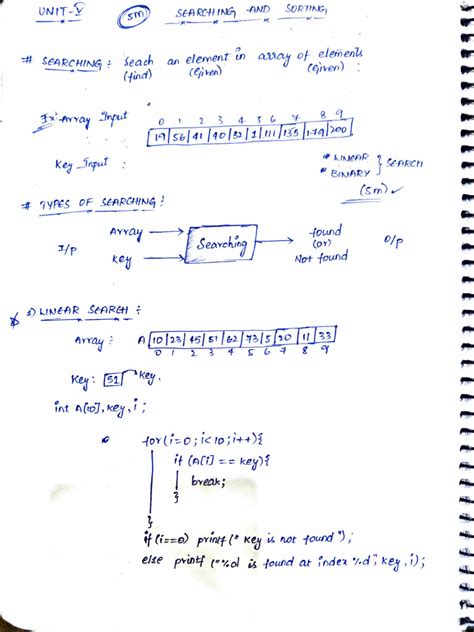 UNIT-V (5M) SEARCHING AND SORTING
# SEARCHING : Seach an element in array of elements
(find) (Given) (Given)
Ex: Array Input
0 1 2 3 4 5 6 7 8 9
19 56 41 40 32 1 111 135 179 200
Key Input :
* LINEAR
* BINARY } SEARCH
(5m) ✓
# TYPES OF SEARCHING :
I/P Array → Searching → found (or) Not found O/P
key →
1) LINEAR SEARCH :
Array : A 10 23 45 51 62 73 5 20 11 33
0 1 2 3 4 5 6 7 8 9
Key : 51 key.
int A[10], key, i ;
for(i=0 ; i<10 ; i++){
if (A[i] == key){
break;
}
}
if (i==0) printf (" key is not found ");
else printf ("%d is found at index %d", key, i);